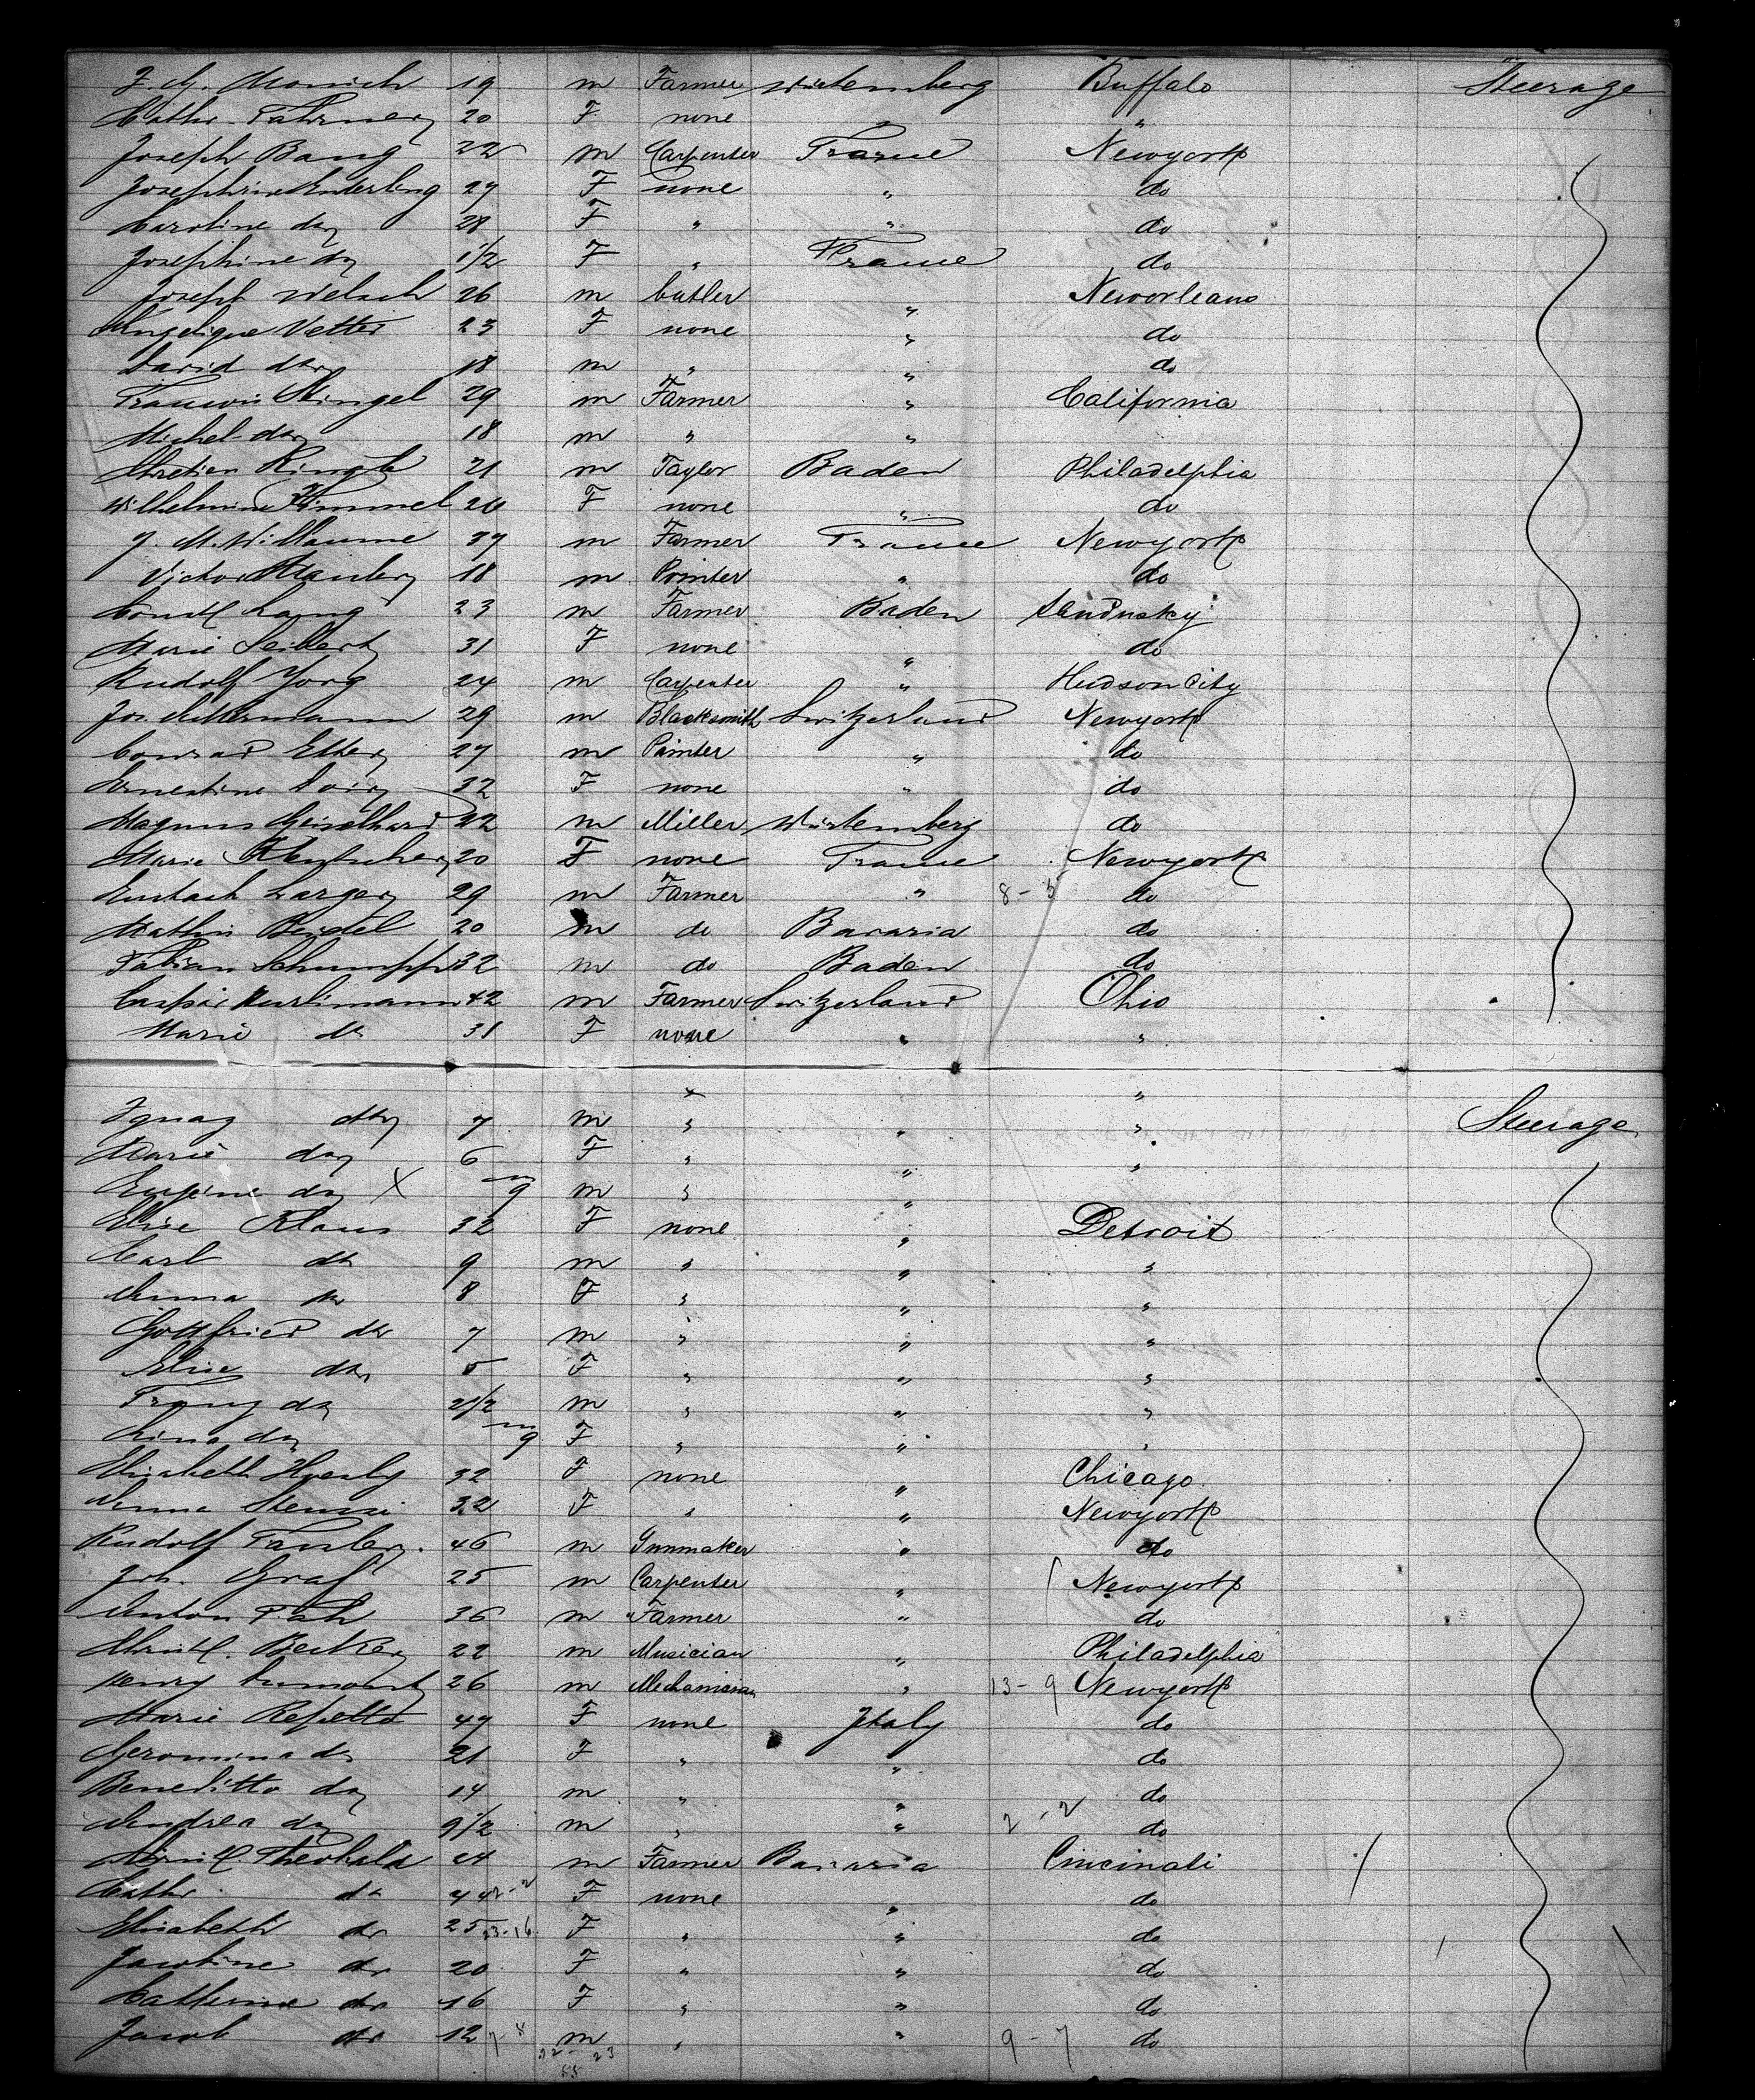 J. G. Monich 19 m Farmer Würtemberg Buffalo Steerage
Cathr. Fahrner 20 F none " "
Joseph Bang 22 m Carpenter France Newyork
Josephine Enterling 27 F none " do
Caroline do 28 F " " do
Josephine do 1 1/2 F " France do
Joseph Welsch 26 m Cutler " Neworleans
Angelique Vetter 23 F none " do
David do 18 m " " do
Francois Stingel 29 m Farmer " California
Michel do 18 m " "
Chretien Ringle 21 m Taylor Baden Philadelphia
Wilhelmina Himmel 24 F none " do
J. M. Willaume 37 m Farmer France Newyork
Victor 18 m Printer " do
Lang 23 m Farmer Baden Sandusky
Marie Seibert 31 F none " do
Rudolf Yorg 24 m Carpenter " Hudson City
Jos Ackermann 29 m Blacksmith Switzerland Newyork
Conrad Etter 27 m Painter " do
Ernestine 32 F none " do
Magnus Geiselhard 22 m Miller Würtemberg do
Marie 20 F none France Newyork
Eustach Larger 29 m Farmer " 8-5 do
Mathis Bendel 20 m do Bavaria do
Fabian Schumpp 32 m do Baden do
Caspar Hurlimann 42 m Farmer Switzerland Ohio
Marie do 31 F none " "
" "
Ignaz do 7 m " " " Steerage
Marie do 6 F " " "
Eugene do X m 9 m " "
Elise Klaus 32 F none " Detroit
Carl do 9 m " " "
Anna do 8 F " " "
Gottfried do 7 m " " "
Elise do 5 F " " "
Franz do 2 1/2 m " " "
Lina do m 9 F " " "
Elisabeth 32 F none " Chicago
Anna Steussi 32 F " " Newyork
Rudolf 46 m Gunmaker " do
Joh. Graf 25 m Carpenter " Newyork
Anton 36 m Farmer " do
Becker 22 m Musician " Philadelphia
Henry Dumont 26 m Mechanician " 13-9 Newyork
Marie Repetto 47 F none Italy do
Geromina do 21 F " " do
Beneditto do 14 m " " do
Andrea do 9 1/2 m " " 2-2 do
Theobald 24 m Farmer Bavaria Cincinati
Cathr. do 44 F none " do
Elisabeth do 25 23-16 F " " do
Jacobine do 20 F " " do
Catherine do 16 F " " do
Jacob do 12 7-8 m " " 9-7 do
32-23
55